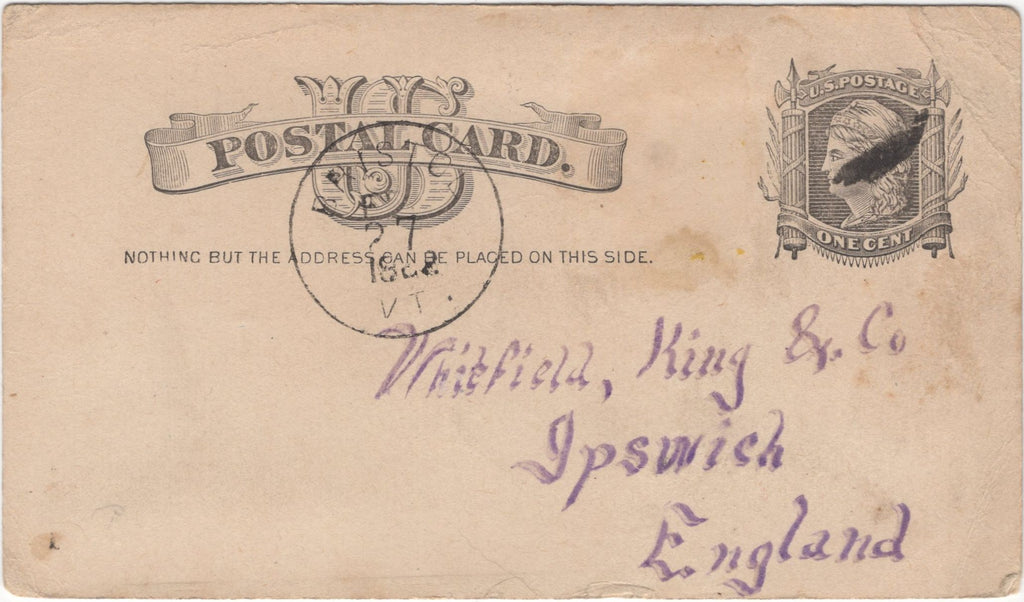 US
POSTAL CARD.
U.S. POSTAGE
ONE CENT
NOTHING BUT THE ADDRESS CAN BE PLACED ON THIS SIDE.
27
VT.
Whitfield, King &. Co
Ipswich
England